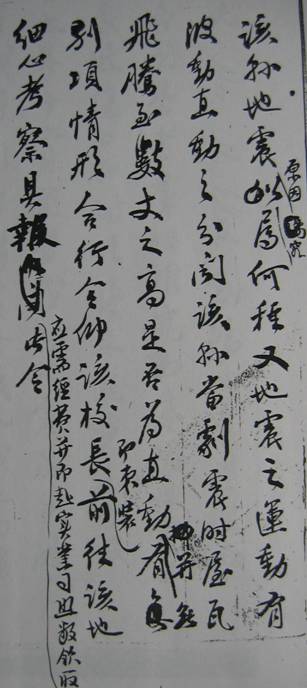 該縣地震原因究屬何種又地震之運動有
波動直動之分聞該縣當劇震時屋瓦
飛騰至數丈之高是否為直動有無
別項情形合行令仰該校長即束裝前往該地
細心考察具報此令
應需經費并即赴實業司照數領取